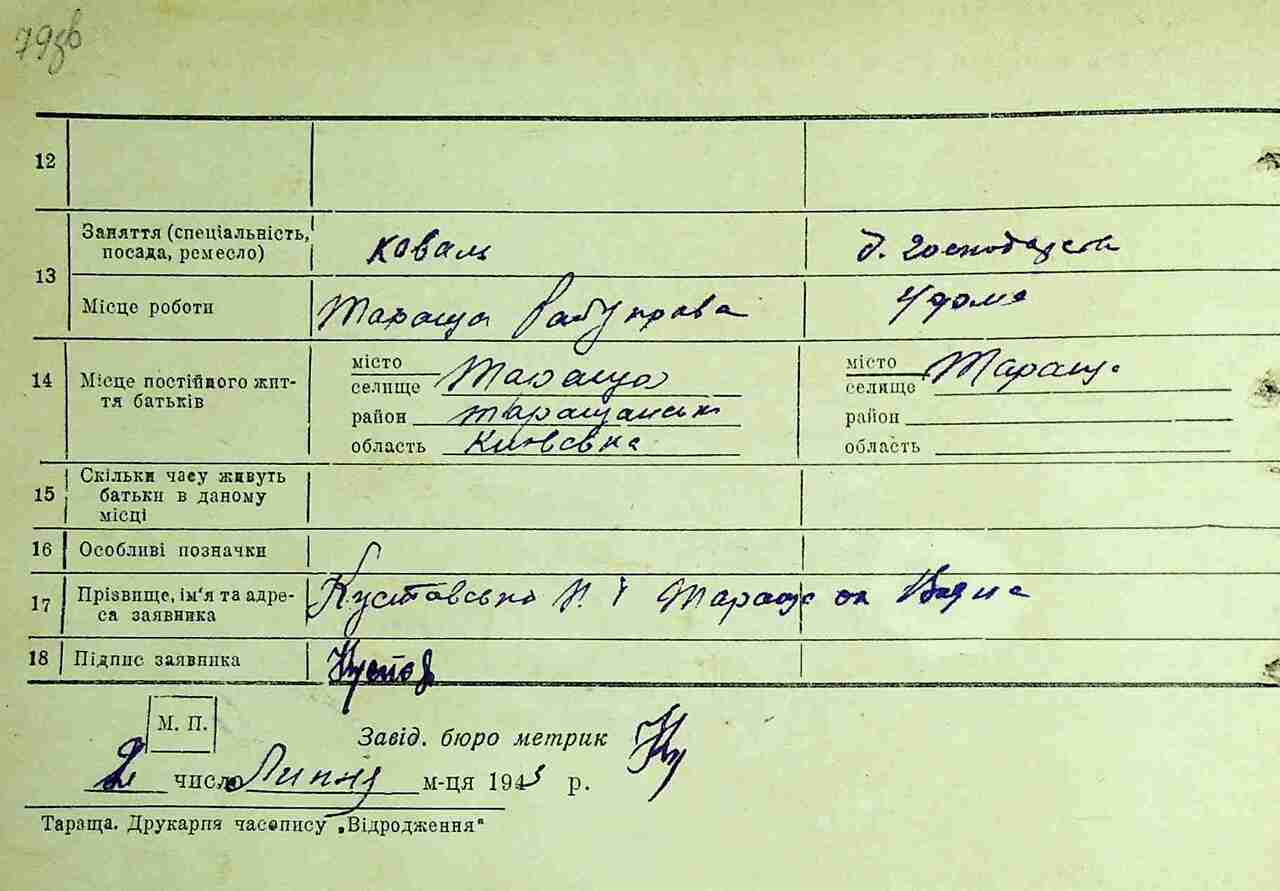 79зв
12
Заняття (спеціальність, посада, ремесло) коваль д. господарств
13
Місце роботи Тараща Райупрова У дома
14 Місце постійного життя батьків
місто Тараща місто Тараща
селище селище
район Таращанськ район
область Київська область
15 Скільки часу живуть батьки в даному місці
16 Особливі позначки
17 Прізвище, ім'я та адреса заявника Кустовська Тараща
18 Підпис заявника Кустов
М. П.
Завід. бюро метрик
2 число Липня м-ця 1943 р.
Тараща. Друкарня часопису „Відродження“